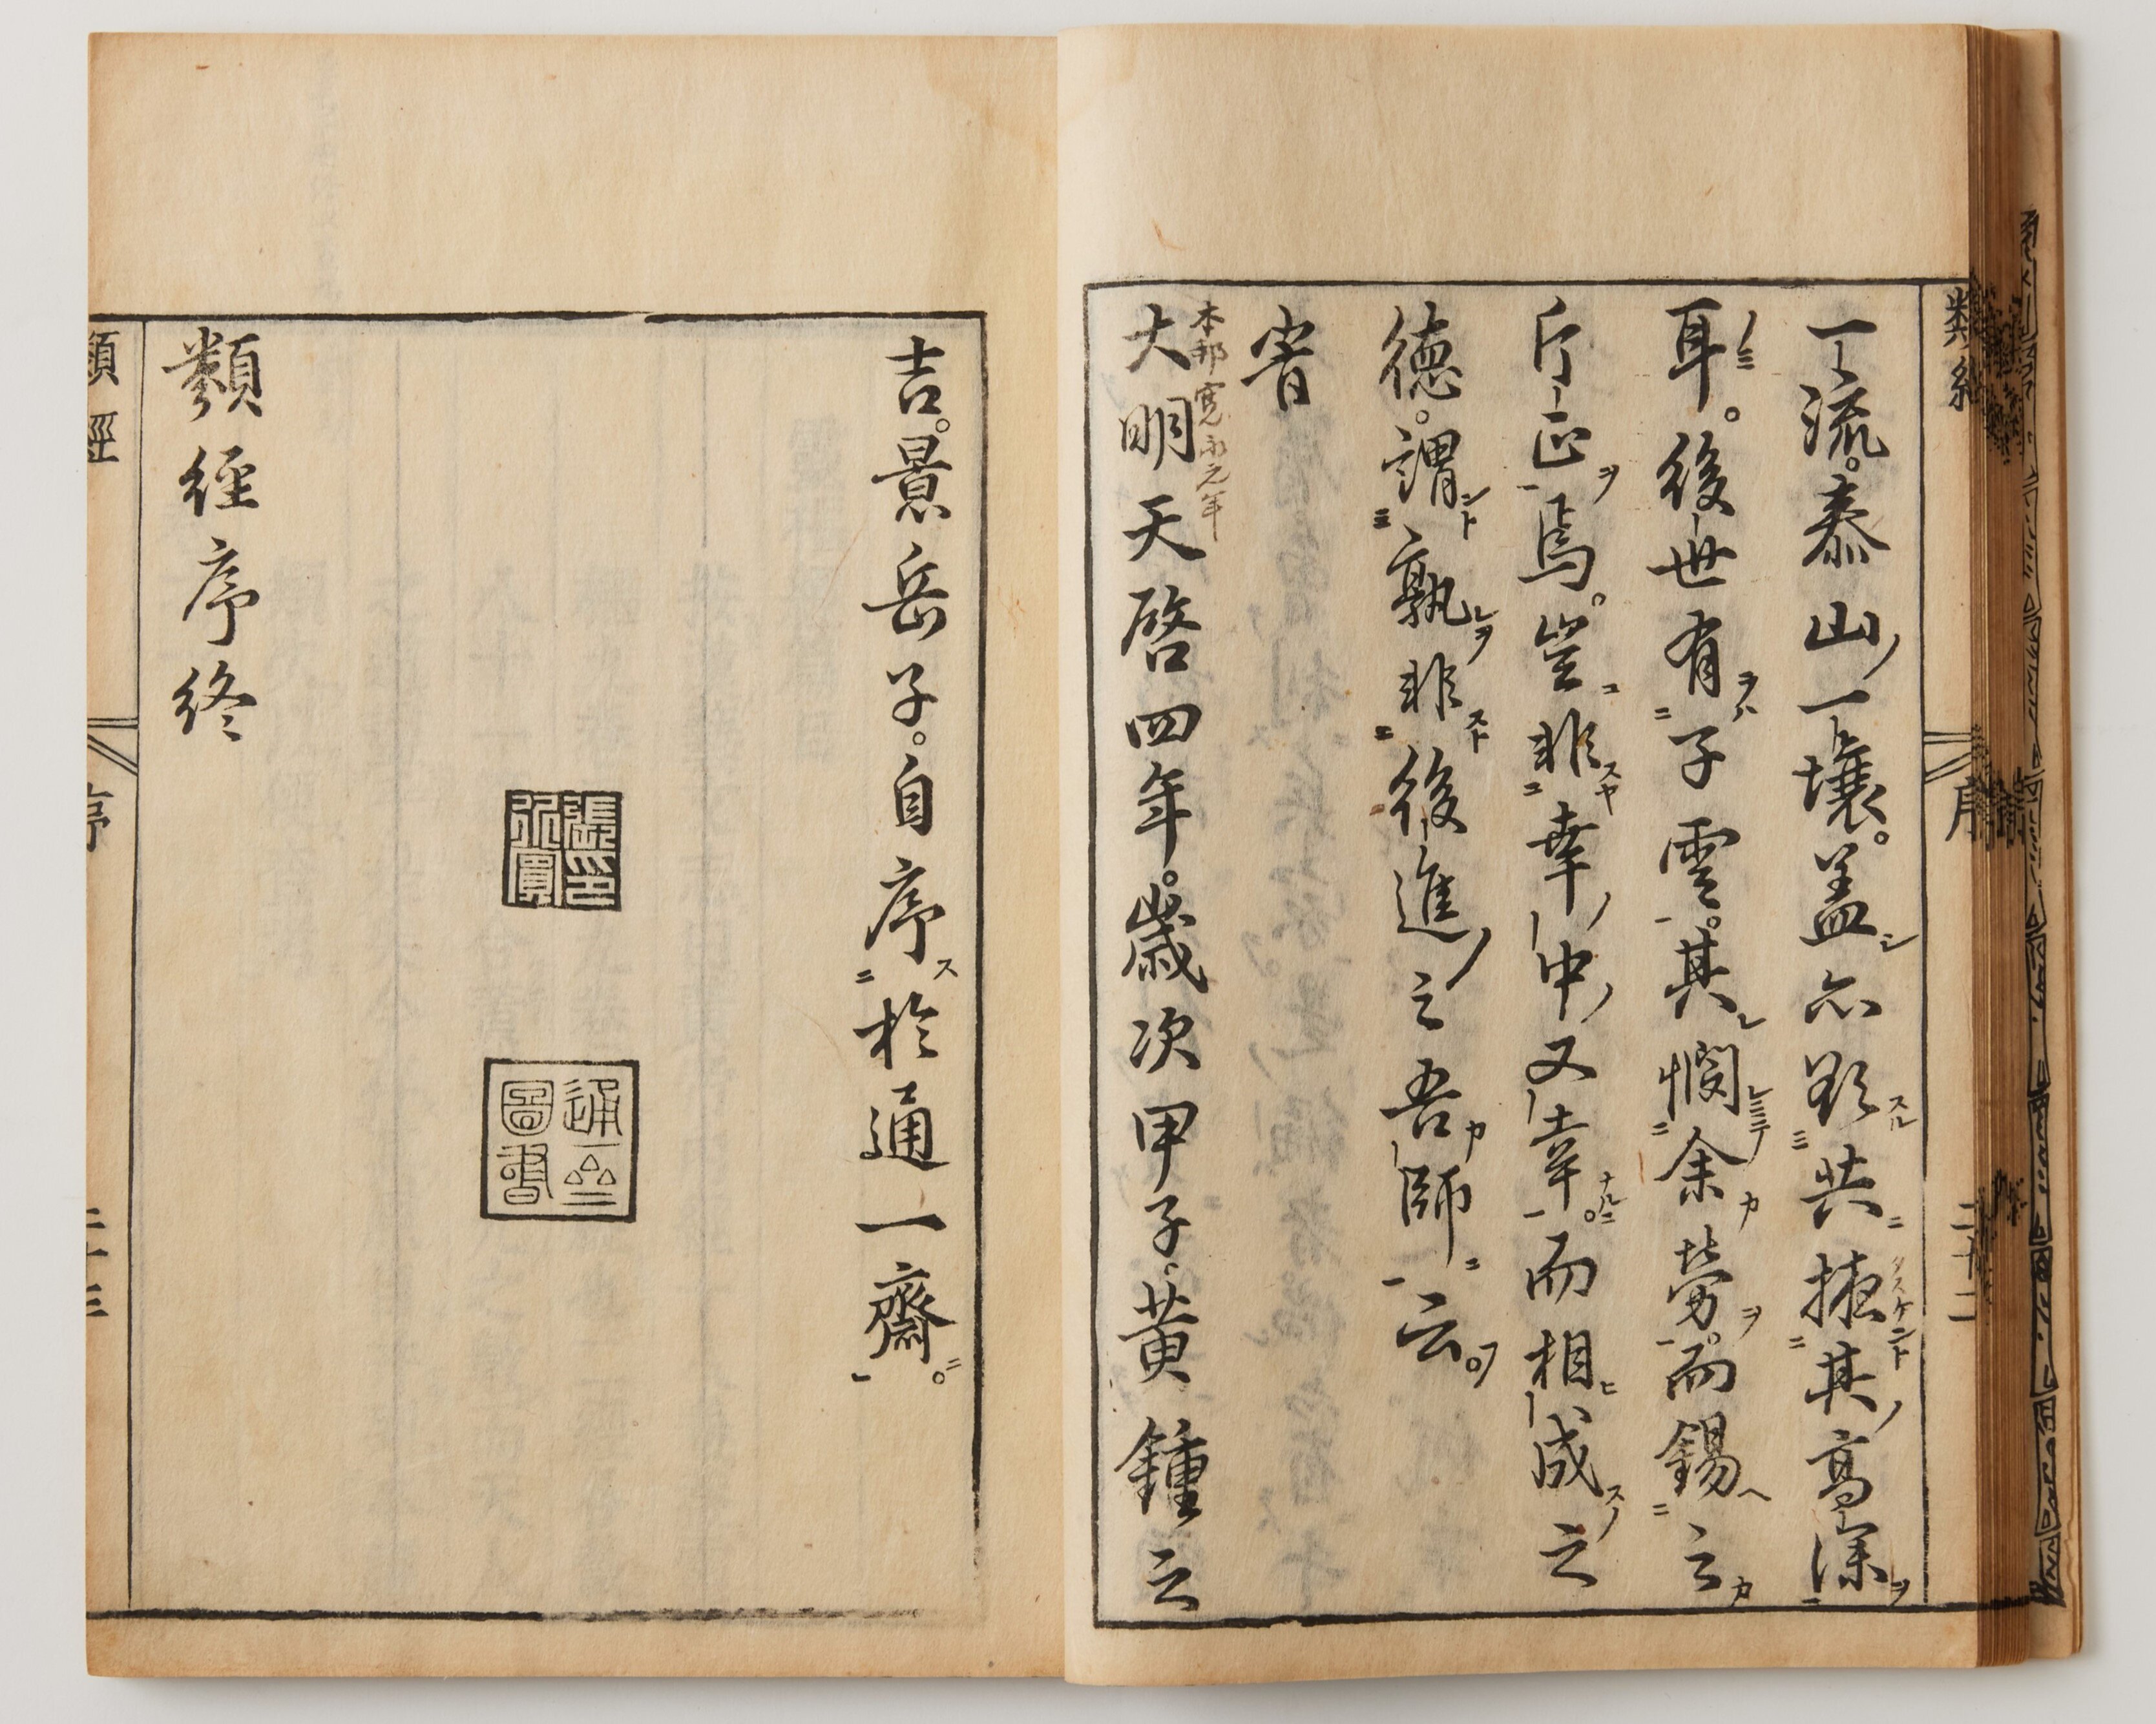 類經 序 二十二
一流。泰山一壤。盖亦欲共掖其高深
耳。後世有子雲。其憫余勞。而錫之
斤正焉。豈非幸中又幸。而相成之
德。謂孰非後進之吾師云。
旹
本邦寛永元年
大明天啓四年。歲次甲子。黄鍾之
吉。景岳子。自序於通一齋。
張印
介賓
圖書
類經序終
類經 序